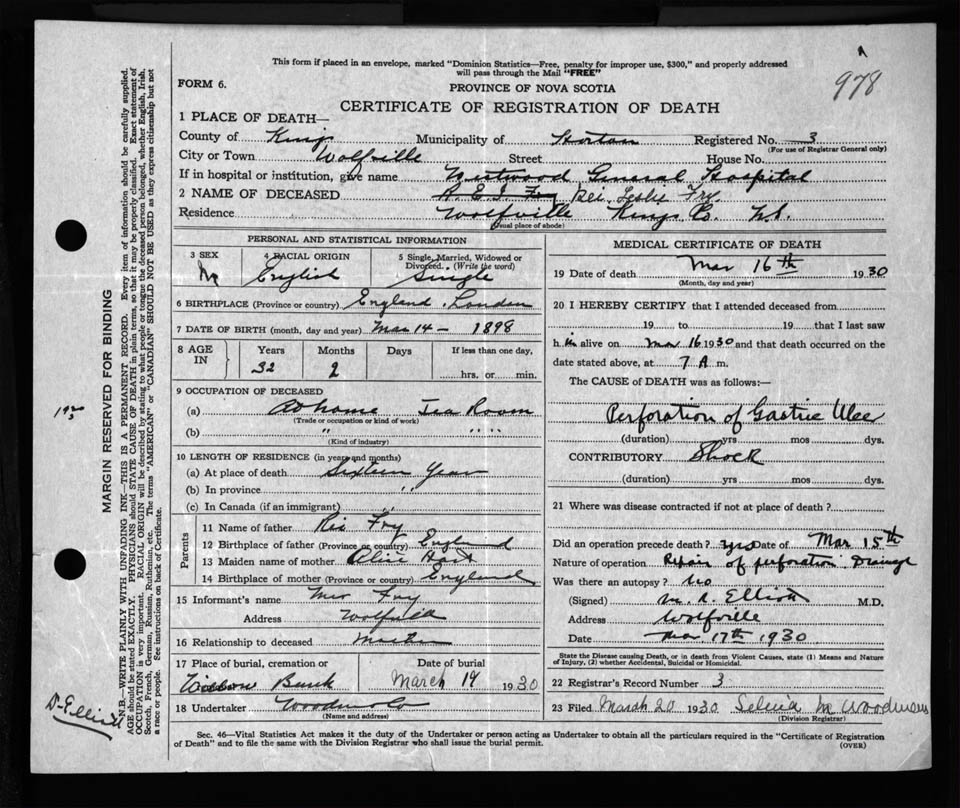 This form if placed in an envelope, marked "Dominion Statistics—Free, penalty for improper use, $300," and properly addressed
will pass through the Mail "FREE"
978
FORM 6.
PROVINCE OF NOVA SCOTIA
CERTIFICATE OF REGISTRATION OF DEATH
1 PLACE OF DEATH—
County of Kings Municipality of Horton Registered No. 3
(For use of Registrar General only)
City or Town Wolfville Street House No.
If in hospital or institution, give name Westwood General Hospital
2 NAME OF DECEASED R. E. Fry Leslie Fry
Residence Wolfville Kings Co. N.S.
(Usual place of abode)
PERSONAL AND STATISTICAL INFORMATION
3 SEX 4 RACIAL ORIGIN 5 Single, Married, Widowed or
Divorced. (Write the word)
M English Single
6 BIRTHPLACE (Province or country) England. London
7 DATE OF BIRTH (month, day and year) Mar 14 — 1898
8 AGE IN Years Months Days If less than one day,
32 2 hrs. or min.
9 OCCUPATION OF DECEASED
(a) At home Tea Room
(Trade or occupation or kind of work)
(b) " " "
(Kind of industry)
10 LENGTH OF RESIDENCE (in years and months)
(a) At place of death Sixteen Years
(b) In province "
(c) In Canada (if an immigrant) "
Parents
11 Name of father Fry
12 Birthplace of father (Province or country) England
13 Maiden name of mother Alice
14 Birthplace of mother (Province or country) England
15 Informant's name Mrs Fry
Address Wolfville
16 Relationship to deceased Mother
17 Place of burial, cremation or Date of burial
Willow Bank March 19 1930
18 Undertaker Woodman Co
(Name and address)
MEDICAL CERTIFICATE OF DEATH
19 Date of death Mar 16th 1930
(Month, day and year)
20 I HEREBY CERTIFY that I attended deceased from
19 to 19 that I last saw
h im alive on Mar 16 1930 and that death occurred on the
date stated above, at 7 A m.
The CAUSE of DEATH was as follows:—
Perforation of Gastric Ulcer
(duration) yrs mos dys.
CONTRIBUTORY Shock
(duration) yrs mos dys.
21 Where was disease contracted if not at place of death?
Did an operation precede death? yes Date of Mar 15th
Nature of operation Repair of perforation Drainage
Was there an autopsy? No
(Signed) M. R. Elliott M.D.
Address Wolfville
Date Mar 17th 1930
State the Disease causing Death, or in death from Violent Causes, state (1) Means and Nature
of Injury, (2) whether Accidental, Suicidal or Homicidal.
22 Registrar's Record Number 3
23 Filed March 20 1930 Selina M Woodman
(Division Registrar)
Sec. 46—Vital Statistics Act makes it the duty of the Undertaker or person acting as Undertaker to obtain all the particulars required in the "Certificate of Registration
of Death" and to file the same with the Division Registrar who shall issue the burial permit.
(OVER)
MARGIN RESERVED FOR BINDING
N.B.—WRITE PLAINLY WITH UNFADING INK—THIS IS A PERMANENT RECORD. Every item of information should be carefully supplied.
AGE should be stated EXACTLY. PHYSICIANS should STATE CAUSE OF DEATH in plain terms, so that it may be properly classified. Exact statement of
OCCUPATION is very important. RACIAL ORIGIN will be described by stating to what people or tongue the deceased person belonged, whether English, Irish,
Scotch, French, German, Russian, Ruthenian, etc. The terms "AMERICAN" or "CANADIAN" SHOULD NOT BE USED as they express citizenship but not
a race or people. See instructions on back of Certificate.
Dr Elliott